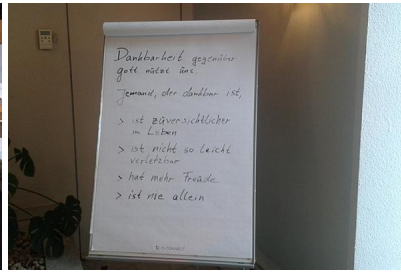 Dankbarheit gegenüber
gott nützt üns.
Jemand, der dankbar ist,
> ist züversichtlicher
im Leben
> ist nicht so leicht
verletzbar
> hat mehr Freüde
> ist nie allein